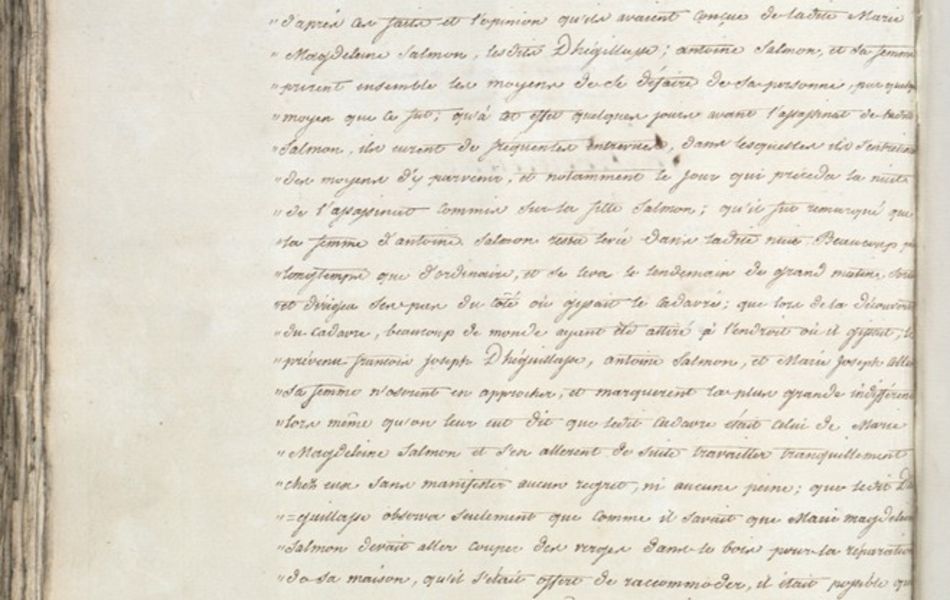 " d'après ces faits et l'opinion qu'ils avaient conçue de ladite Marie
" Magdeleine Salmon, lesdits Dhéguillape; antoine Salmon, et sa femme
" prirent ensemble les moyens de se défaire de sa personne, par quelque
" moyen que ce fut; qu'à cet effet quelques jours avant l'assassinat de ladite
" Salmon, ils eurent de fréquentes entrevues, dans lesquelles ils s'entretinrent
" des moyens d'y parvenir, et notamment le jour qui précéda la nuit
" de l'assassinat commis sur la fille Salmon; qu'il fut remarqué que
" la femme d'antoine Salmon resta levée dans ladite nuit Beaucoup
" longtemps que d'ordinaire, et se leva le lendemain de grand matin,
" et dirigea ses pas du côté où gissait le cadavre; que lors de la découverte
" du cadavre, beaucoup de monde ayant été attiré à l'endroit où il gissait,
" prévenu françois joseph Dhéguillape, antoine Salmon, et Marie Joseph
" sa femme n'osèrent en approcher, et marquèrent la plus grande indifférence
" lors même qu'on leur eut dit que ledit Cadavre était celui de Marie
" Magdeleine Salmon et s'en allèrent de suite travailler tranquillement
" chez eux sans manifester aucun regret, ni aucune peine; que ledit
" =guillape observa seulement que comme il savait que Marie magdeleine
" Salmon devait aller couper des verges dans le bois pour la réparation
" de sa maison, qu'il s'était offert de raccommoder, il était possible que